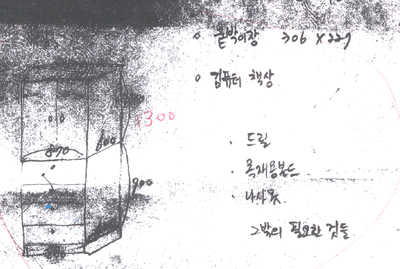 붙박이장 306 X 229
컴퓨터 책상
1300
600
870
900
드릴
목재용본드
나사못
그밖의 필요한 것들